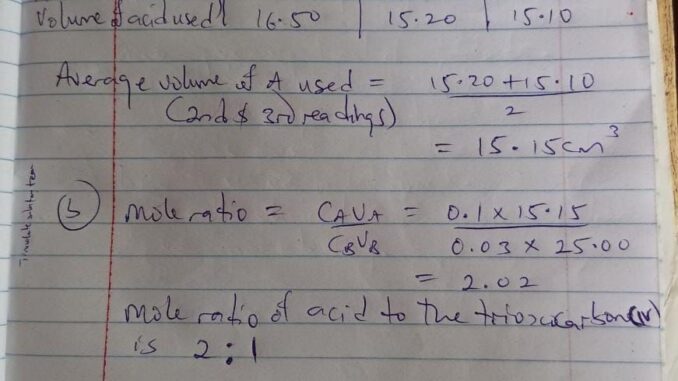 Volume of acid used | 16.50 | 15.20 | 15.10
Average volume of A used = 15.20 + 15.10 / 2
(2nd $ 3rd readings)
= 15.15cm³
(b) mole ratio = CAVA / CBVB = 0.1 x 15.15 / 0.03 x 25.00
= 2.02
mole ratio of acid to the trioxocarbon(iv)
is 2:1